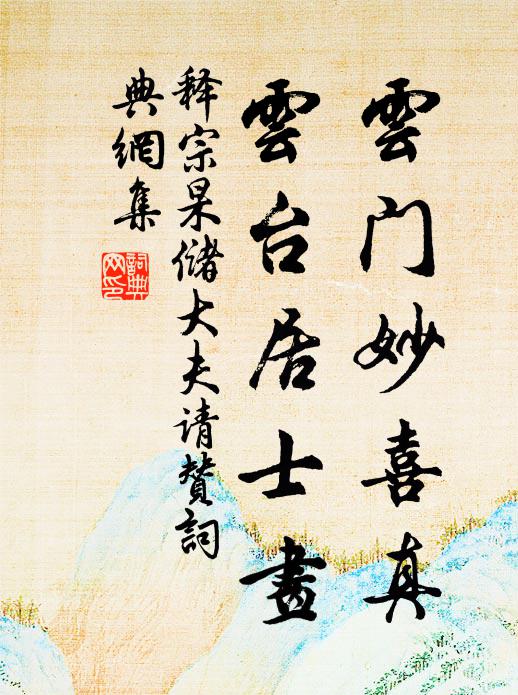 雲门妙喜真
雲台居士畫
释宗杲儲大夫请赞詞
典網集
詞典網印